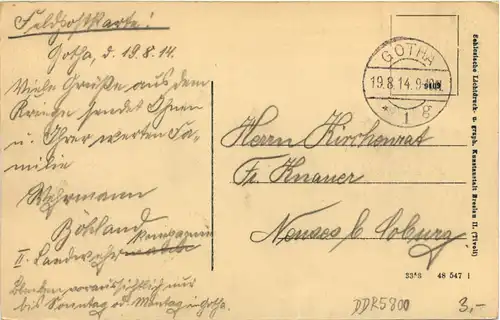 Feldpostkarte!
Gotha, d. 19.8.14.
Viele Grüße aus dem
Kriege sendet Ihnen
u. Ihrer werten Fa-
milie
Wehrmann
Bohland
Kompagnie
II. Landwehr
bleiben voraussichtlich nur
bis Sonntag od. Montag in Gotha.
GOTHA
19.8.14.9-10V
* 1 g
Herrn Kirchenrat
Fr. Knauer
Neuses b. Coburg.
Schlesische Lichtdruck- u. graph. Kunstanstalt Breslau II. (Tivoli)
48 547 1
DDR5800
3,-